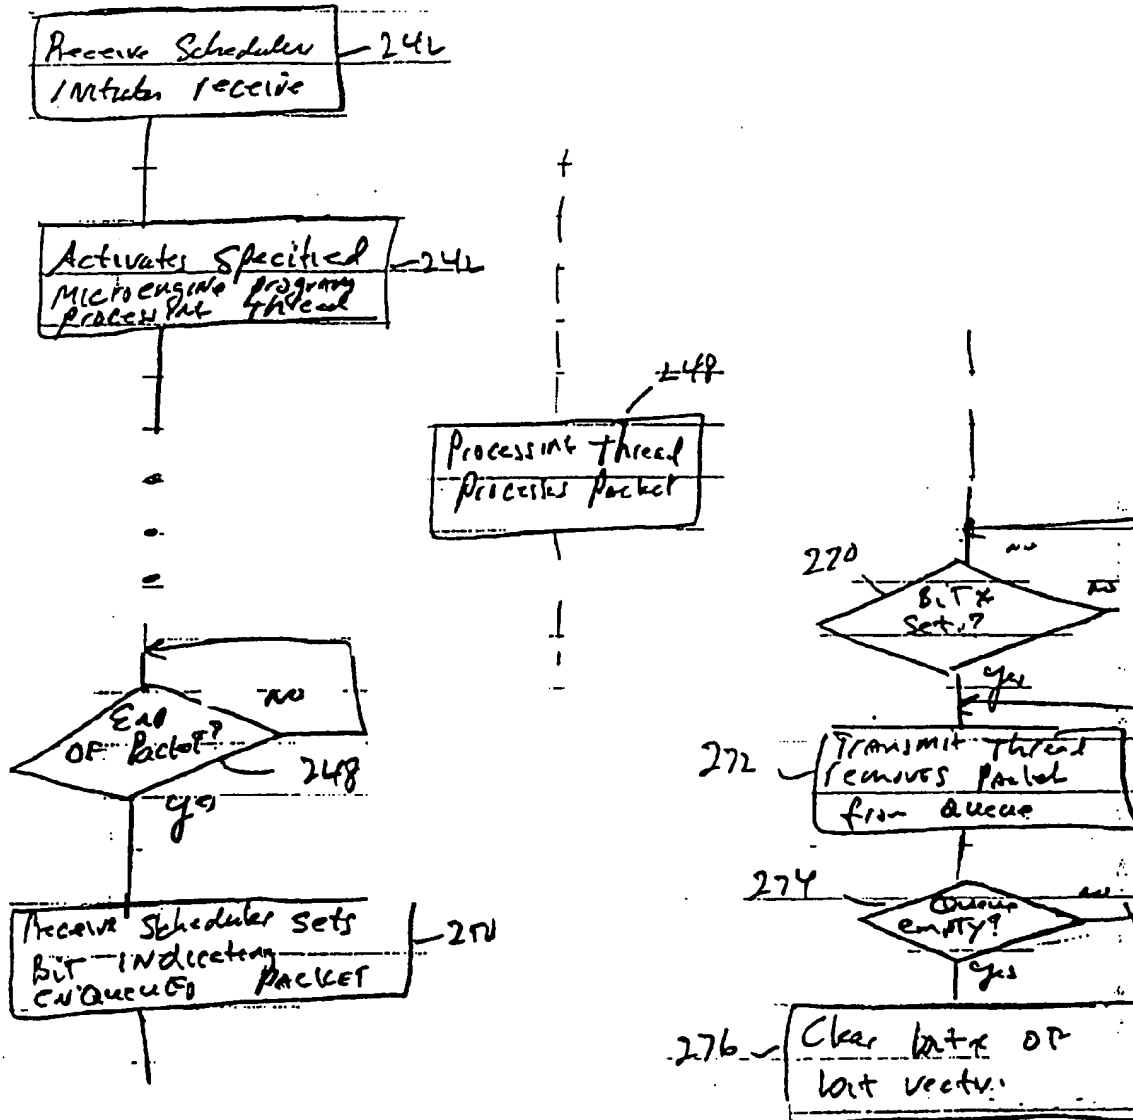 Receive Scheduler
Initiates receive
242
Activates Specified
Microengine program
processing thread
242
248
Processing thread
processes packet
End
OF Packet?
NO
248
yes
Receive Scheduler sets
Bit Indicating
ENQUEUED PACKET
250
NO
270
BiT x
Set?
NO
yes
272
Transmit Thread
removes packet
from Queue
274
Queue
empty?
NO
yes
276
Clear bit x OF
bit vector